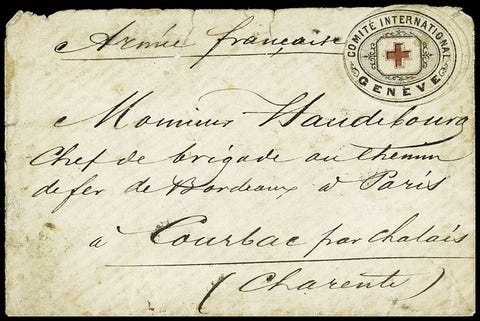 Armée française
COMITÉ INTERNATIONAL
GENÈVE
Monsieur Haudebourg
Chef de brigade au chemin
de fer de Bordeaux à Paris
à Courlac par Chalais
(Charente)